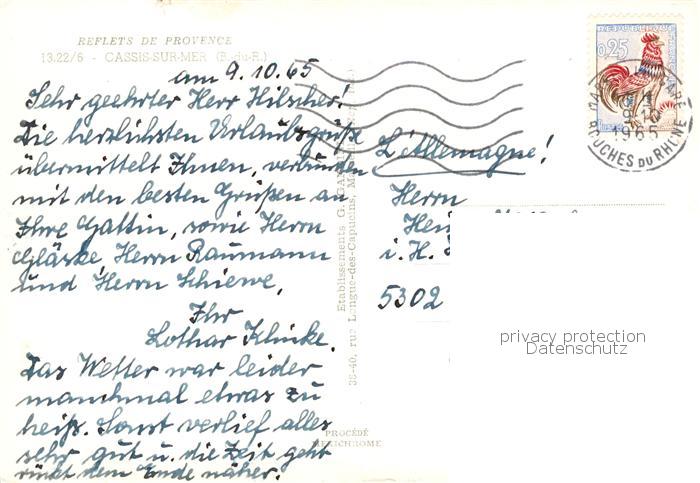 REFLETS DE PROVENCE
13.22/6 - CASSIS-SUR-MER (B.-du-R.)
am 9. 10. 65
Sehr geehrter Herr Hilscher!
Die herzlichsten Urlaubsgrüße
übermittelt Ihnen, verbunden
mit den besten Grüßen an
Ihre Gattin, sowie Herrn
Gläske, Herrn Raumann
und Herrn Schiewe,
Ihr
Lothar Klinke.
Das Wetter war leider
manchmal etwas zu
heiß. Sonst verlief alles
sehr gut u. die Zeit geht
rückt dem Ende näher.
Etablissements G.
38-40, rue Longue-des-Capucins,
PROCÉDÉ
MEXICHROME
REPUBLIQUE
0,25
1965
BOUCHES DU RHÔNE
L'Allemagne!
Herrn
i. H.
5302
privacy protection
Datenschutz